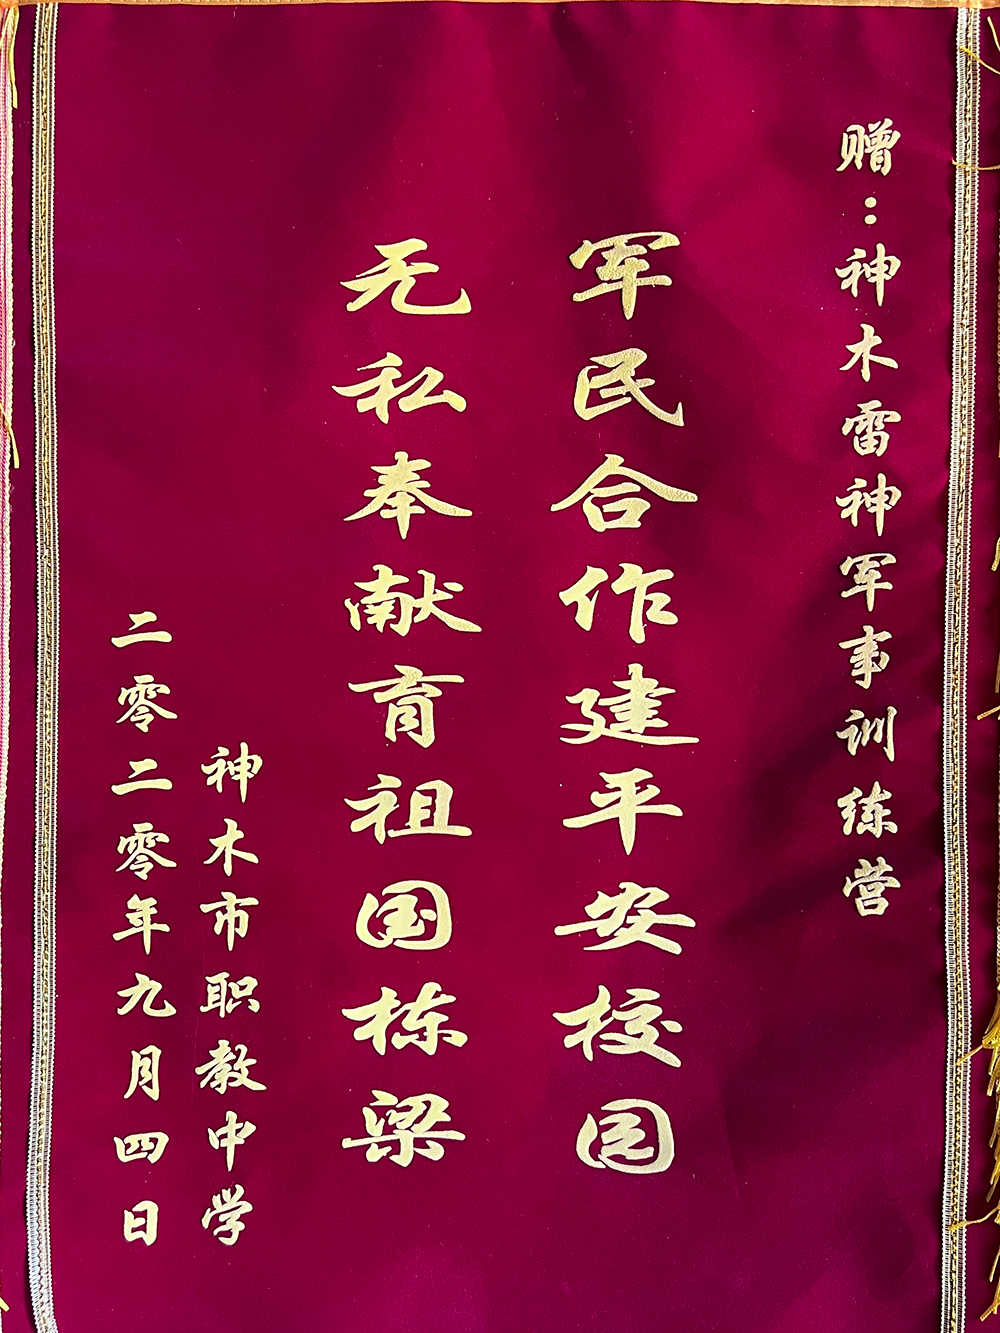 赠：神木雷神军事训练营
军民合作建平安校园
无私奉献育祖国栋梁
神木市职教中学
二零二零年九月四日